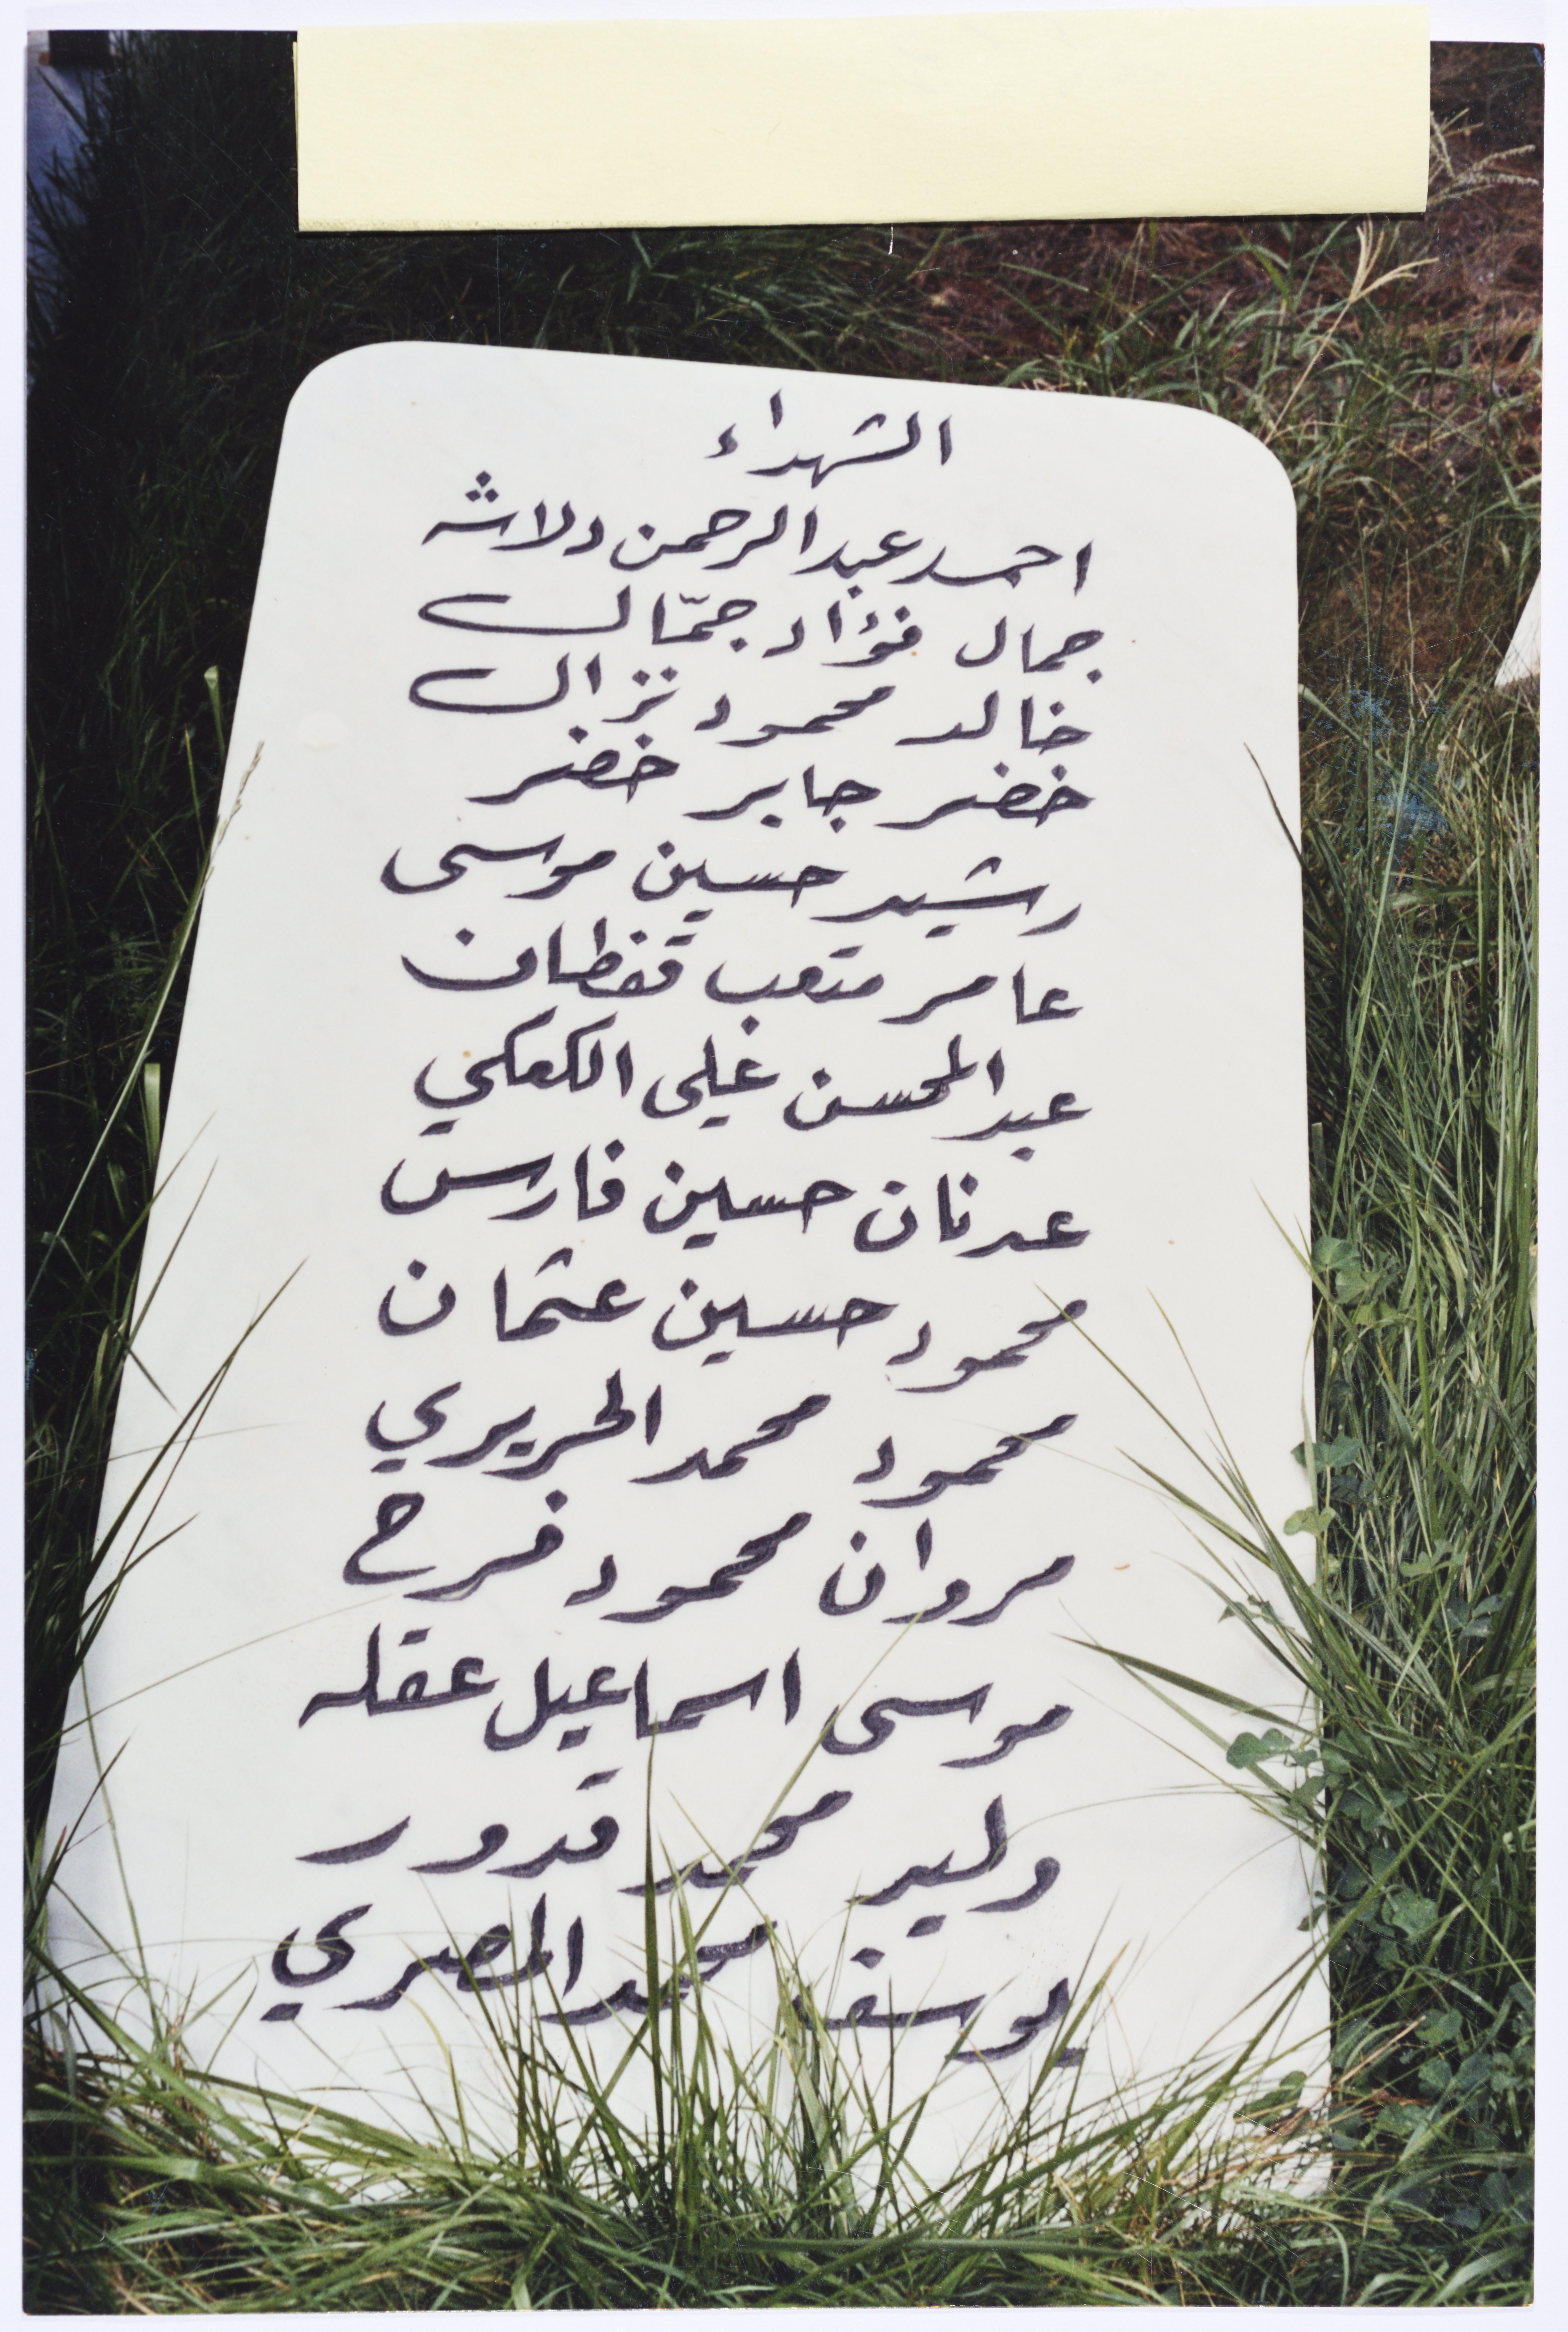 الشهداء
احمد عبد الرحمن دلاشه
جمال فؤاد جمّال
خالد محمود نزال
خضر جابر خضر
رشيد حسين موسى
عامر متعب قفطان
عبد المحسن علي الكعكي
عدنان حسين فارس
محمود حسين عثمان
محمود محمد الحريري
مروان محمود فرح
موسى اسماعيل عقله
وليد محمد قدور
يوسف محمد المصري